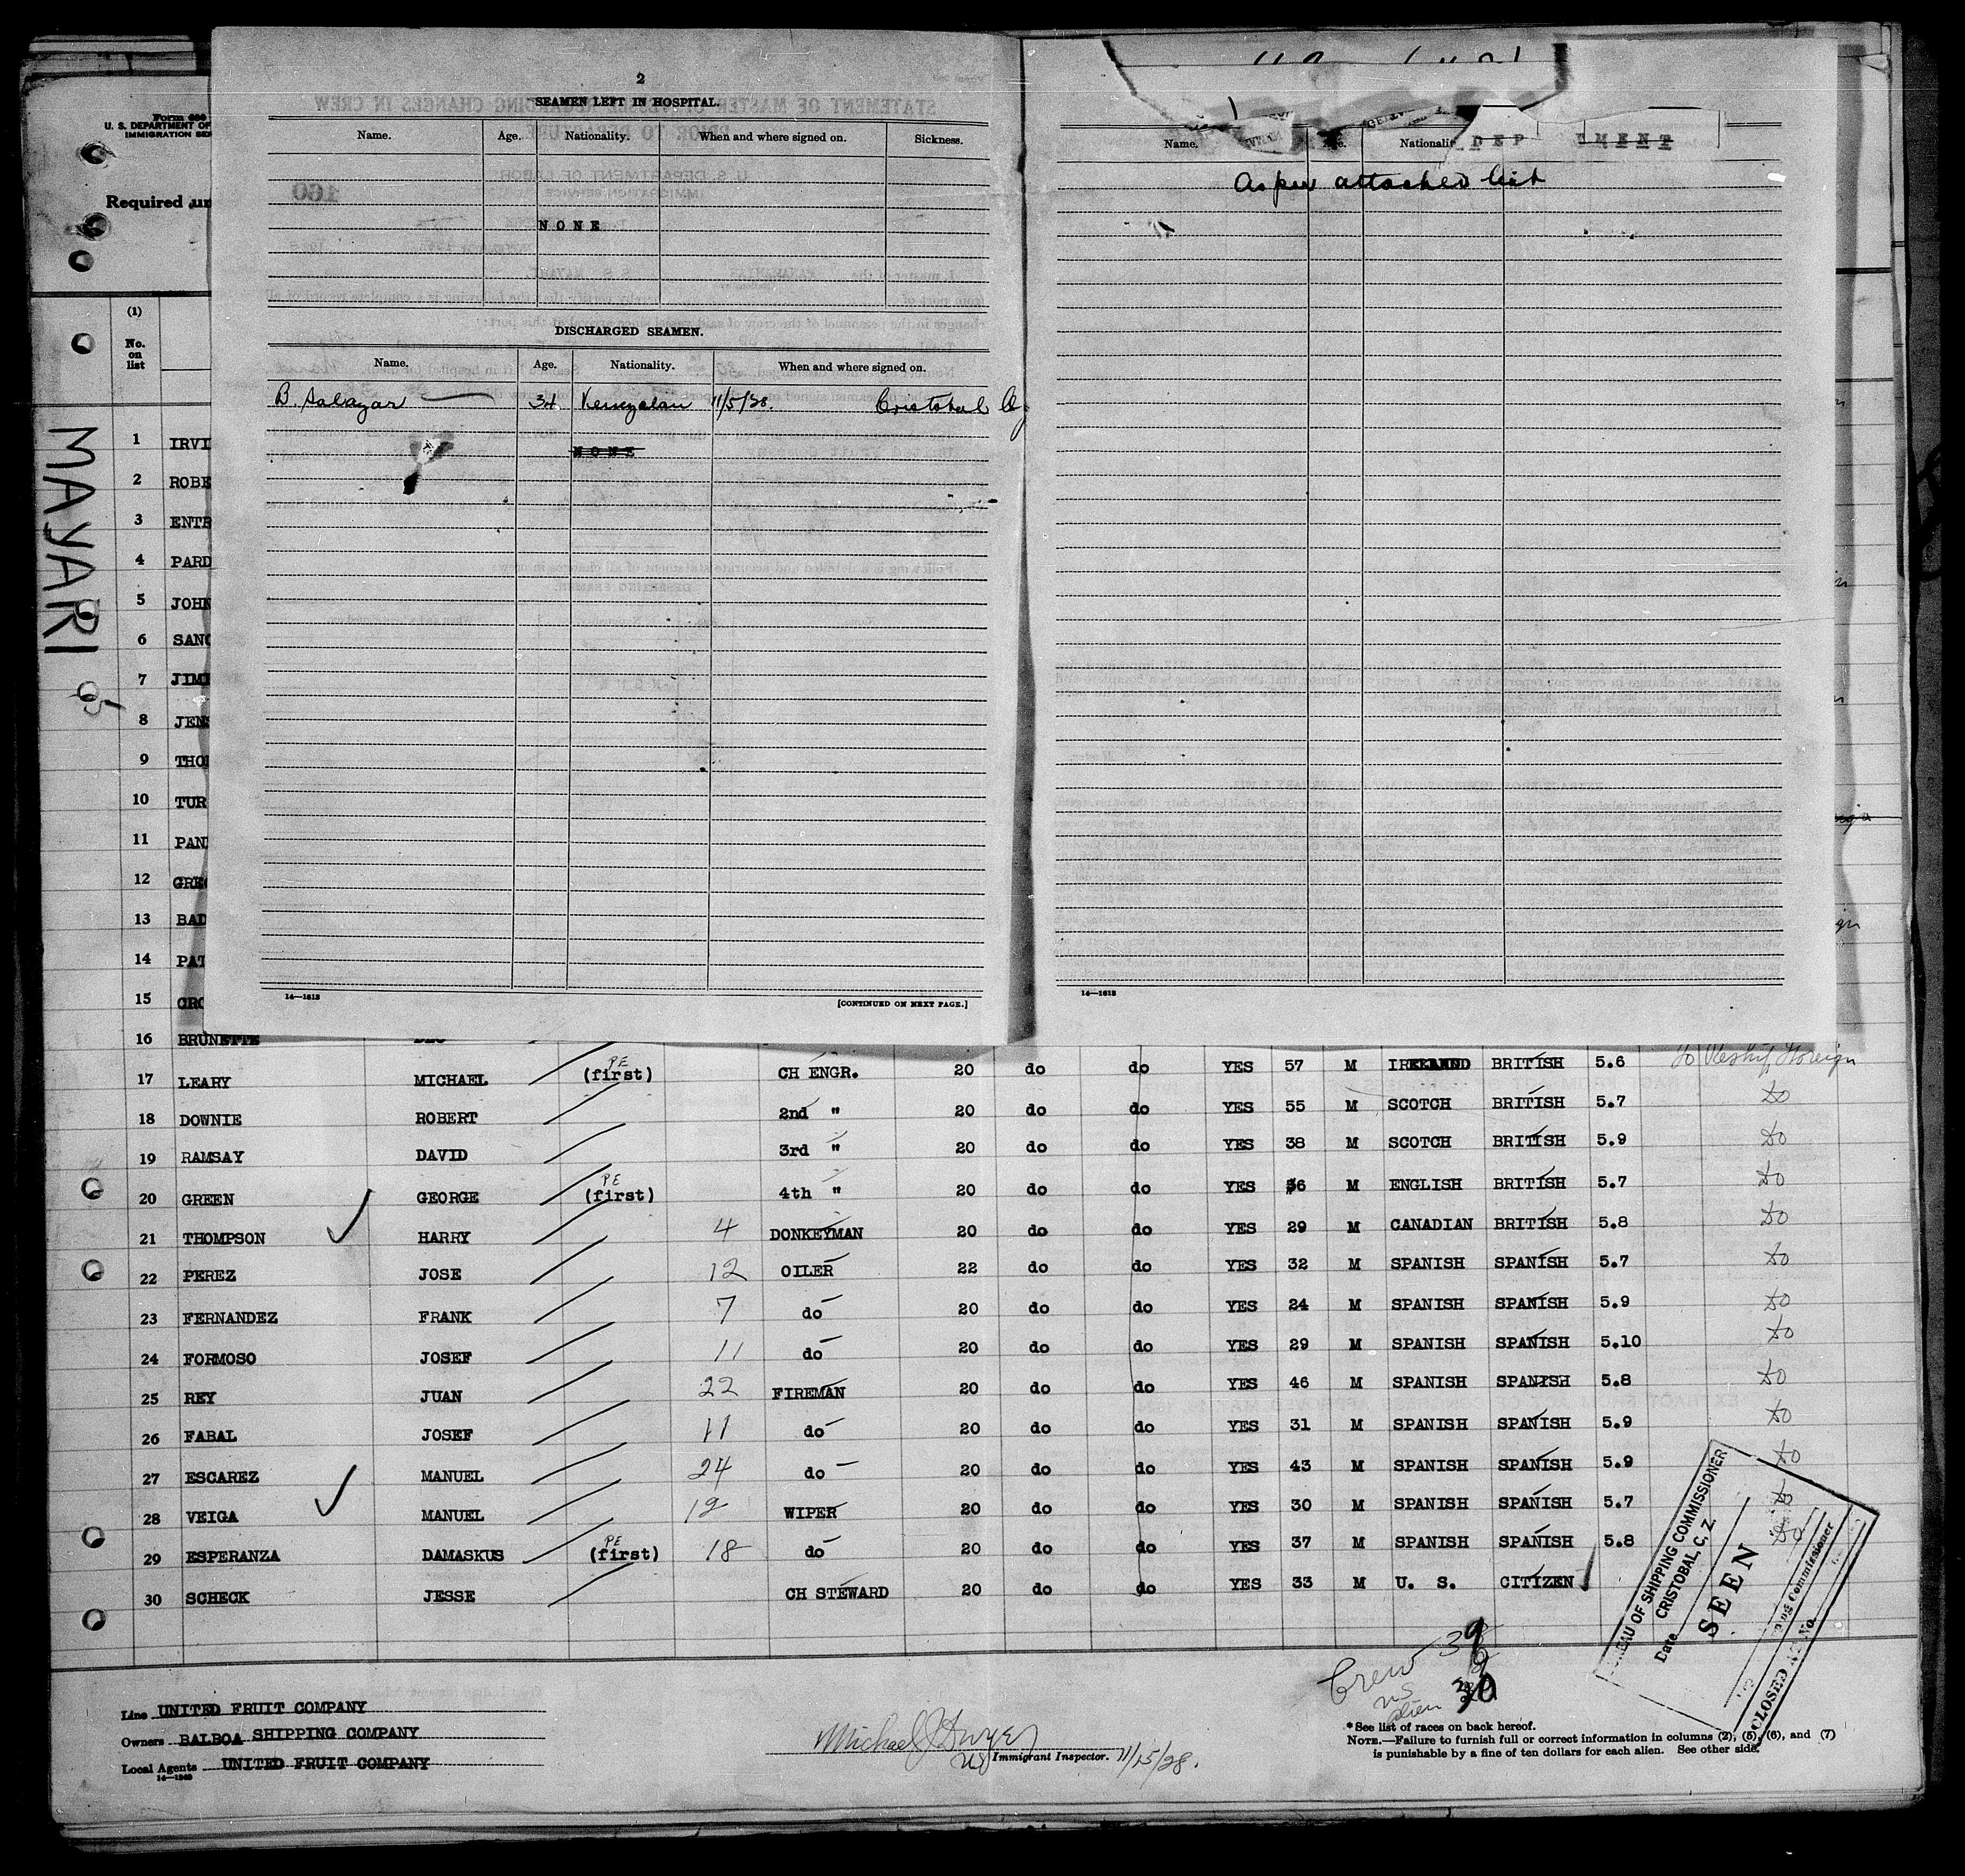 2
SEAMEN LEFT IN HOSPITAL.
Name. Age. Nationality. When and where signed on. Sickness.
NONE
DISCHARGED SEAMEN.
Name. Age. Nationality. When and where signed on.
B. Salazar 34 Venezelan 11/5/28. Cristobal Cz
NONE
14—1613
[CONTINUED ON NEXT PAGE.]
Name. Age. DEP UMENT
As per attached list
14—1613
Form 680
U. S. DEPARTMENT OF
IMMIGRATION SER
Required un
(1)
No. on list
MAYARI
1 IRVI
2 ROBE
3 ENTR
4 PARD
5 JOHN
6 SANC
7 JIME
8 JENS
9 THO
10 TUR
11 PAN
12 GREG
13 BAD
14 PAT
15 CRO
16 BRUNETTE
17 LEARY MICHAEL PE (first) CH ENGR. 20 do do YES 57 M IRELAND BRITISH 5.6 to Reship Foreign
18 DOWNIE ROBERT 2nd " 20 do do YES 55 M SCOTCH BRITISH 5.7 do
19 RAMSAY DAVID 3rd " 20 do do YES 38 M SCOTCH BRITISH 5.9 do
20 GREEN GEORGE PE (first) 4th " 20 do do YES 36 M ENGLISH BRITISH 5.7 do
21 THOMPSON HARRY 4 DONKEYMAN 20 do do YES 29 M CANADIAN BRITISH 5.8 do
22 PEREZ JOSE 12 OILER 22 do do YES 32 M SPANISH SPANISH 5.7 do
23 FERNANDEZ FRANK 7 do 20 do do YES 24 M SPANISH SPANISH 5.9 do
24 FORMOSO JOSEF 11 do 20 do do YES 29 M SPANISH SPANISH 5.10 do
25 REY JUAN 22 FIREMAN 20 do do YES 46 M SPANISH SPANISH 5.8 do
26 FABAL JOSEF 11 do 20 do do YES 31 M SPANISH SPANISH 5.9 do
27 ESCAREZ MANUEL 24 do 20 do do YES 43 M SPANISH SPANISH 5.9 do
28 VEIGA MANUEL 12 WIPER 20 do do YES 30 M SPANISH SPANISH 5.7 do
29 ESPERANZA DAMASKUS PE (first) 18 do 20 do do YES 37 M SPANISH SPANISH 5.8 do
30 SCHECK JESSE CH STEWARD 20 do do YES 33 M U. S. CITIZEN
BUREAU OF SHIPPING COMMISSIONER
CRISTOBAL, C. Z.
Date
SEEN
Commissioner
CLOSED
No.
Crew 39
US 9
Alien 30
Line UNITED FRUIT COMPANY
Owners BALBOA SHIPPING COMPANY
Local Agents UNITED FRUIT COMPANY
14—1240
Michael J Dwyer
US Immigrant Inspector. 11/15/28.
*See list of races on back hereof.
NOTE.—Failure to furnish full or correct information in columns (2), (5), (6), and (7)
is punishable by a fine of ten dollars for each alien. See other side.